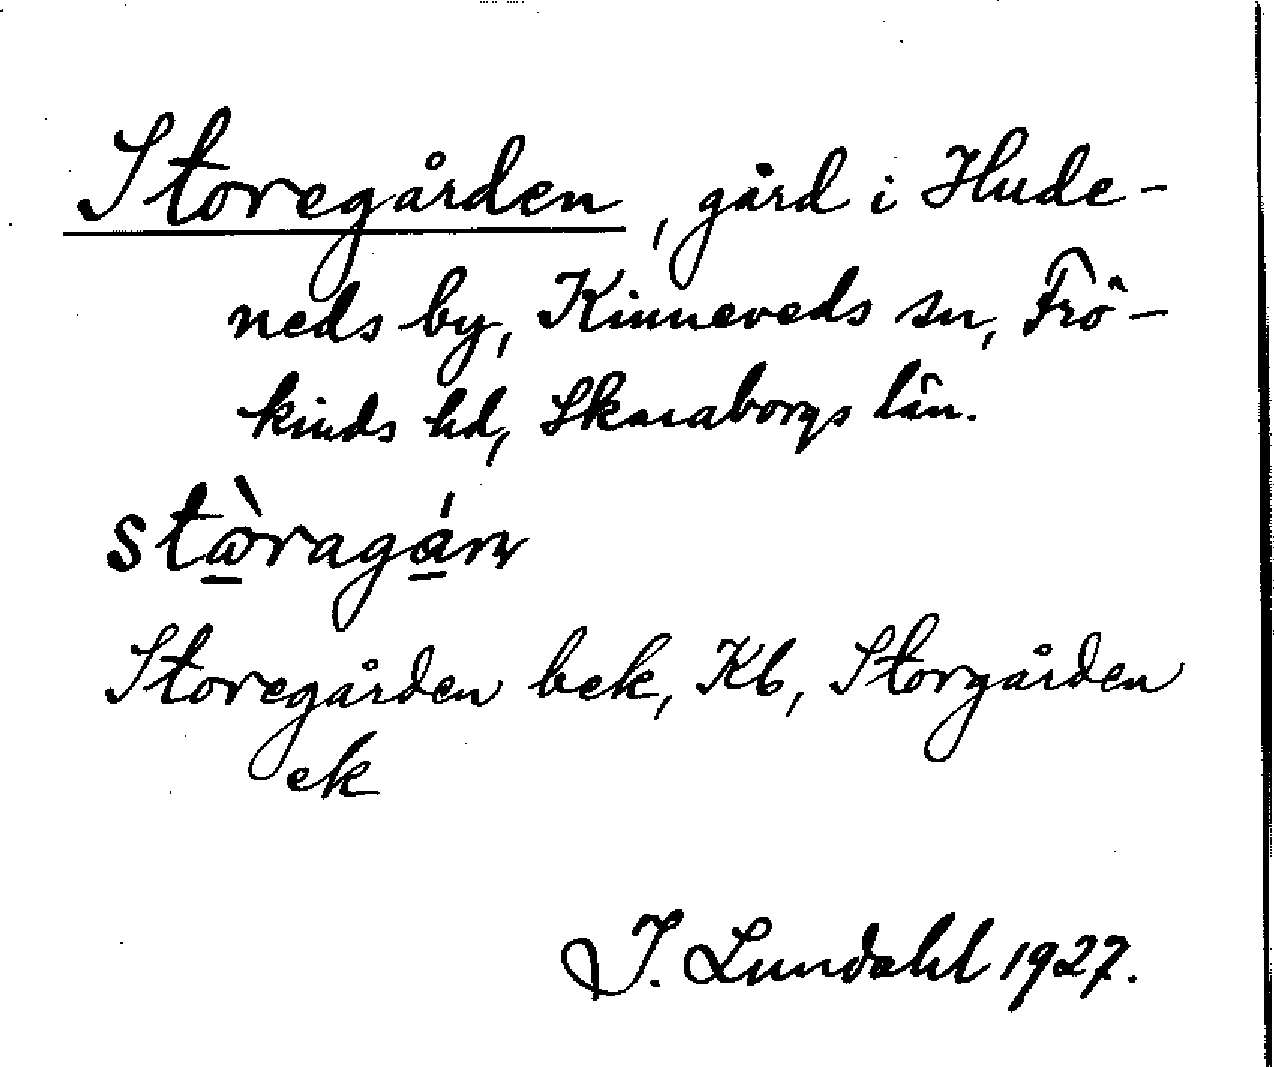 Storegården, gård i Hude-
neds by, Kinneveds sn, Frö-
kinds hd, Skaraborgs län.
Storegården bek, Kb, Storgården
ek
J. Lundahl 1927.